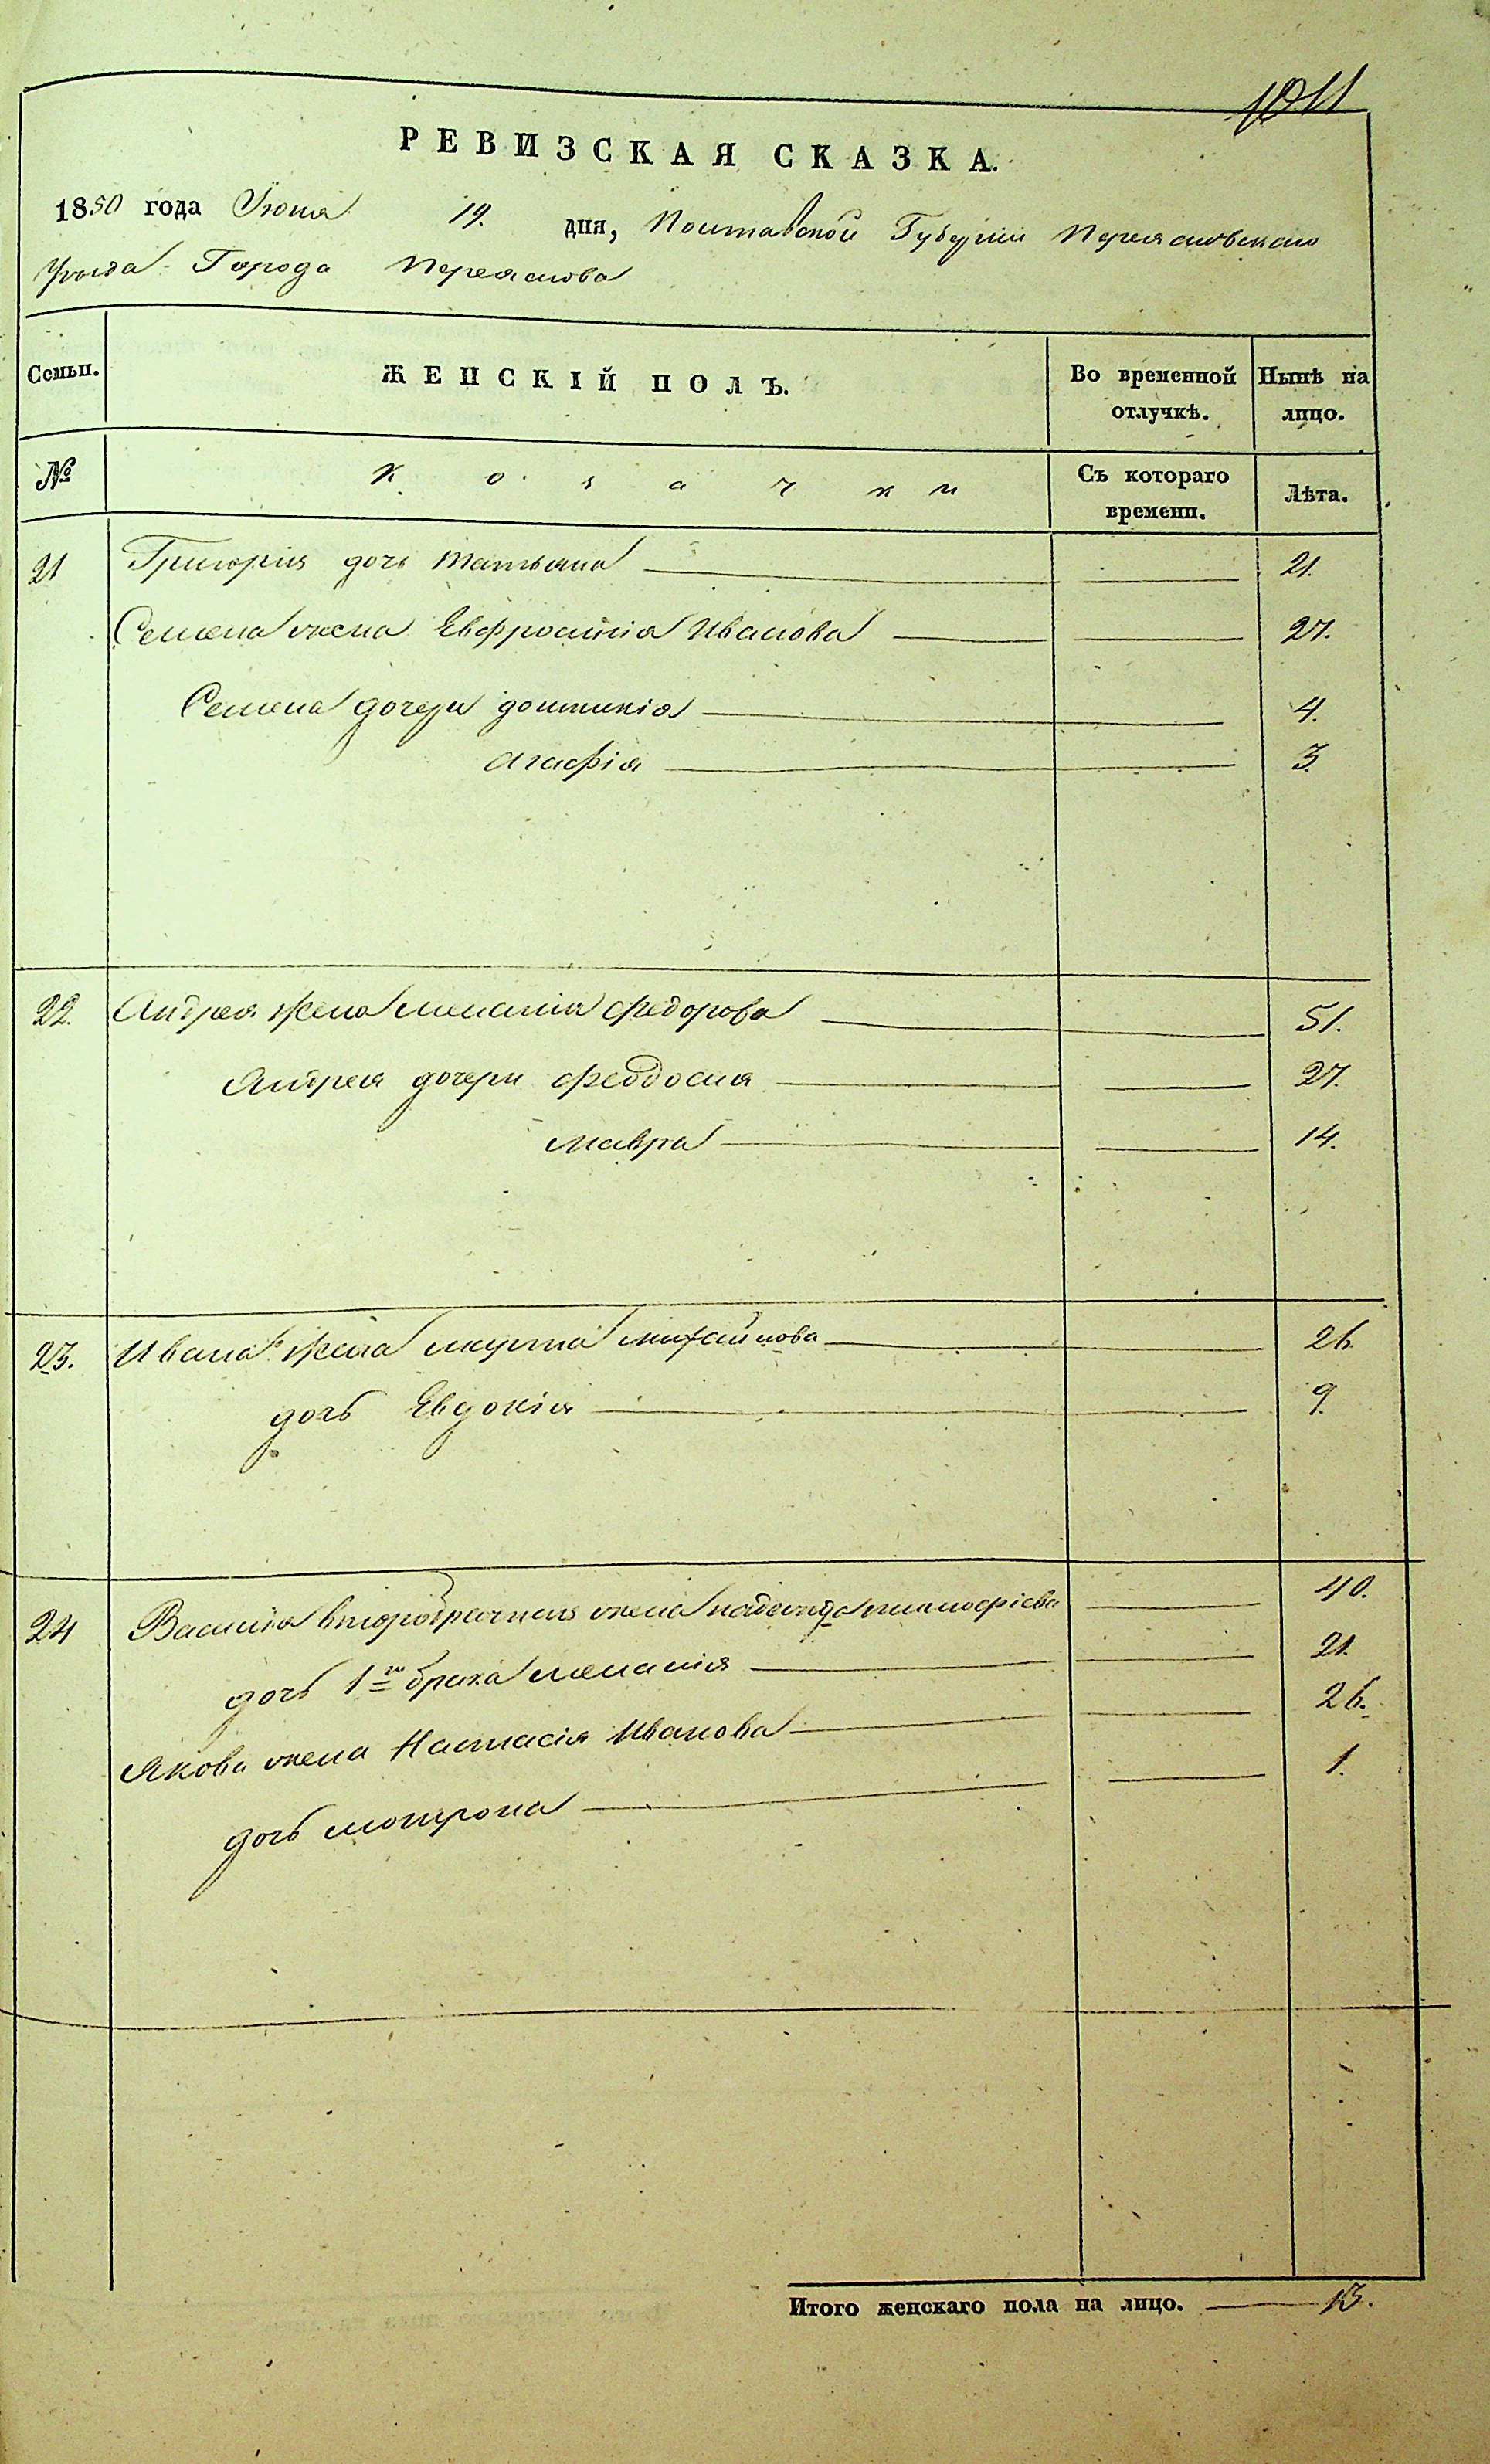 1011
РЕВИЗСКАЯ СКАЗКА.
1850 года Июня 19. дня, Полтавской Губерніи Переяславскаго
Уѣзда Города Переяслова
Семьи. ЖЕНСКІЙ ПОЛЪ. Во временной отлучкѣ. Нынѣ на лицо.
№ Козачки Съ котораго времени. Лѣта.
21 Григорія дочь Татьяна 21.
Семена жена Евфросинія Иванова 27.
Семена дочери Домникія 4.
Агафія 3.
22. Андрея жена Меланія Федорова 51.
Андрея дочери Феодосия 27.
Мавра 14.
23. Ивана жена Михайлова 26.
дочь Евдокія 9.
24 Василія второбрачная жена Надежда Тимофіева 40.
дочь 1го брака Меланія 21.
Якова жена Настасія Иванова 26.
дочь Мотрона 1.
Итого женскаго пола на лицо. 13.